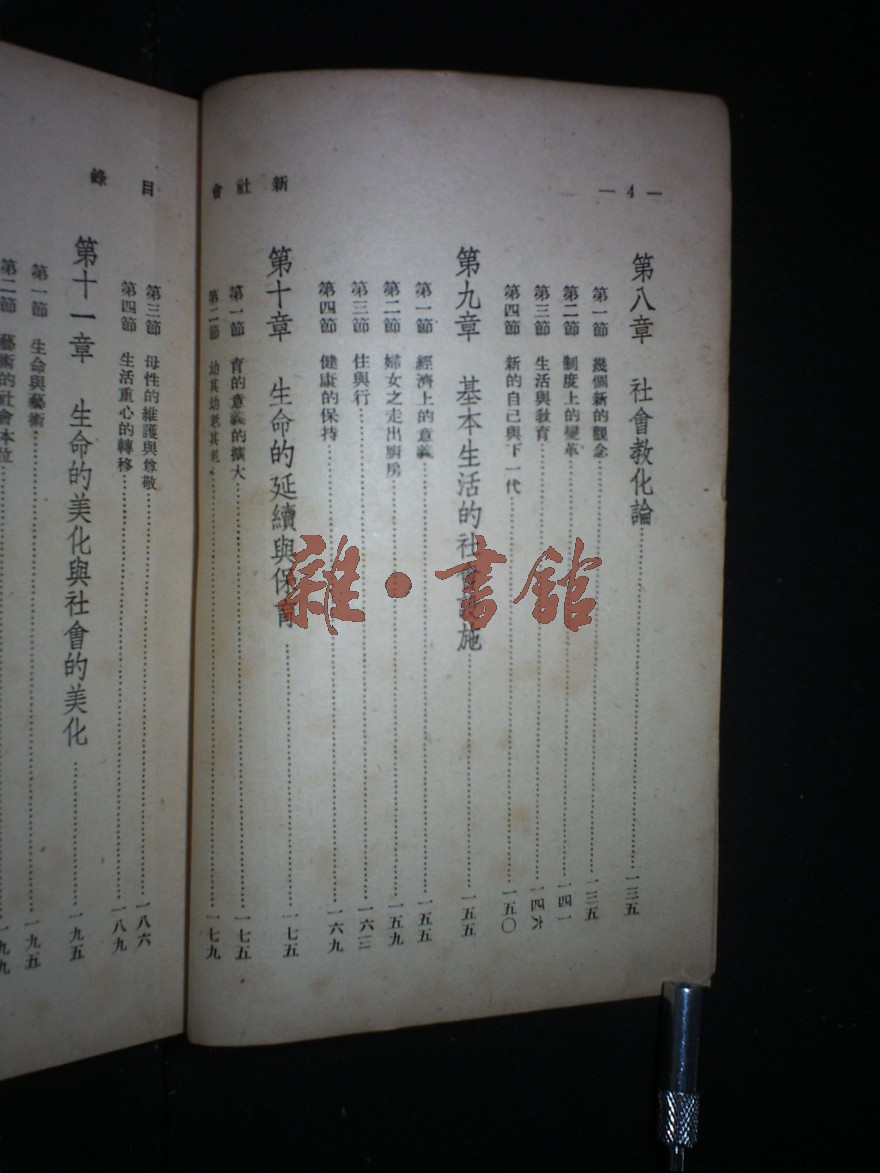 — 4 —
新社會
第八章 社會教化論……一三五
第一節 幾個新的觀念……一三五
第二節 制度上的變革……一四一
第三節 生活與教育……一四六
第四節 新的自己與下一代……一五〇
第九章 基本生活的社會設施……一五五
第一節 經濟上的意義……一五五
第二節 婦女之走出廚房……一五九
第三節 住與行……一六三
第四節 健康的保持……一六九
第十章 生命的延續與保育……一七五
第一節 育的意義的擴大……一七五
第二節 幼其幼老其老……一七九
目錄
第三節 母性的維護與尊敬……一八六
第四節 生活重心的轉移……一八九
第十一章 生命的美化與社會的美化……一九五
第一節 生命與藝術……一九五
第二節 藝術的社會本位……一九九
雜·書館